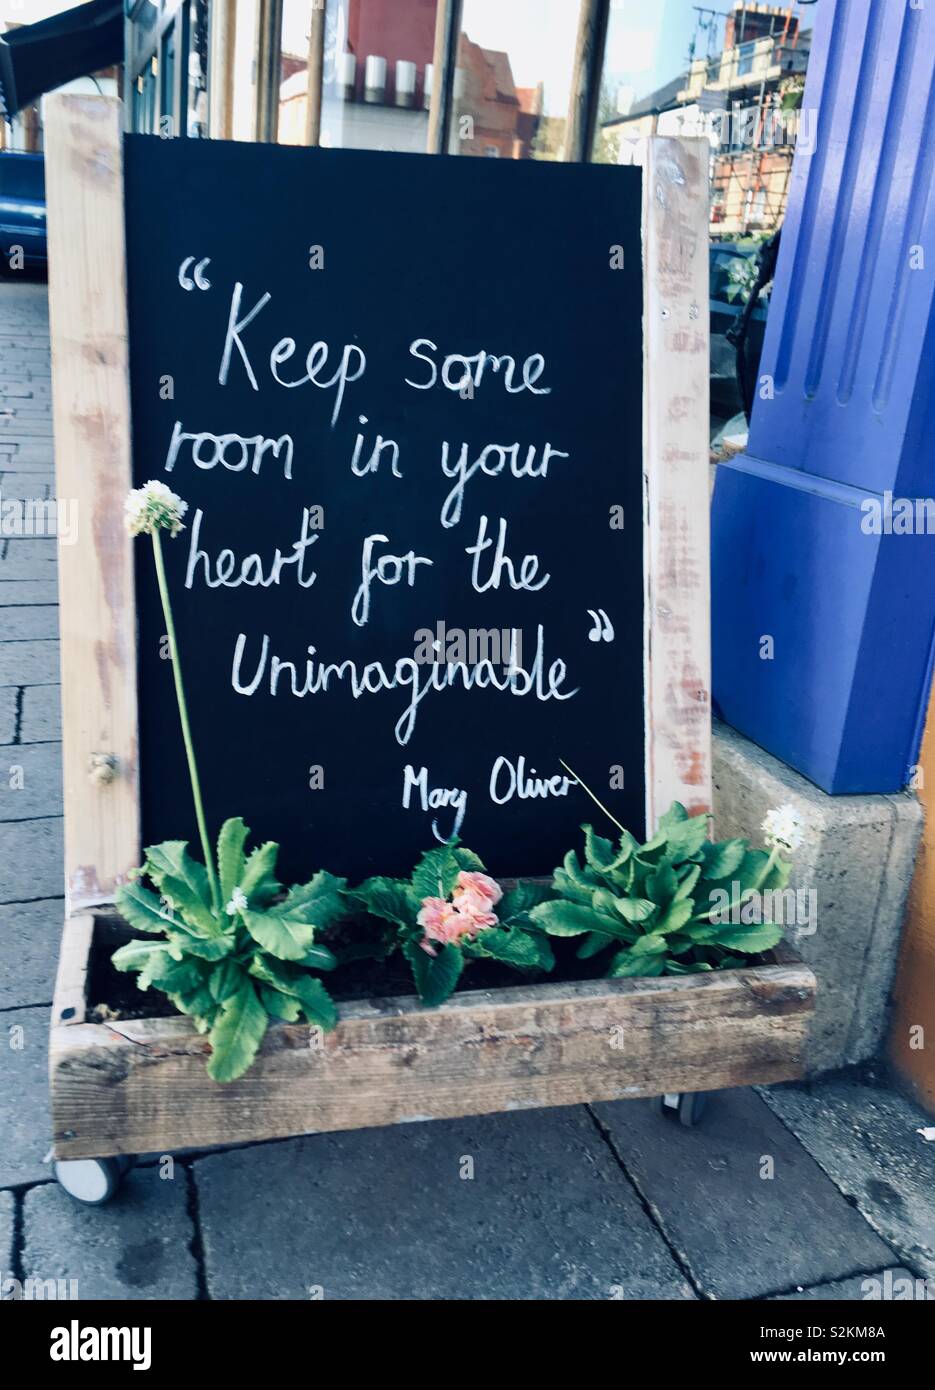 “Keep some
room in your
heart for the
Unimaginable”
Mary Oliver
alamy
Image ID: S2KM8A
www.alamy.com